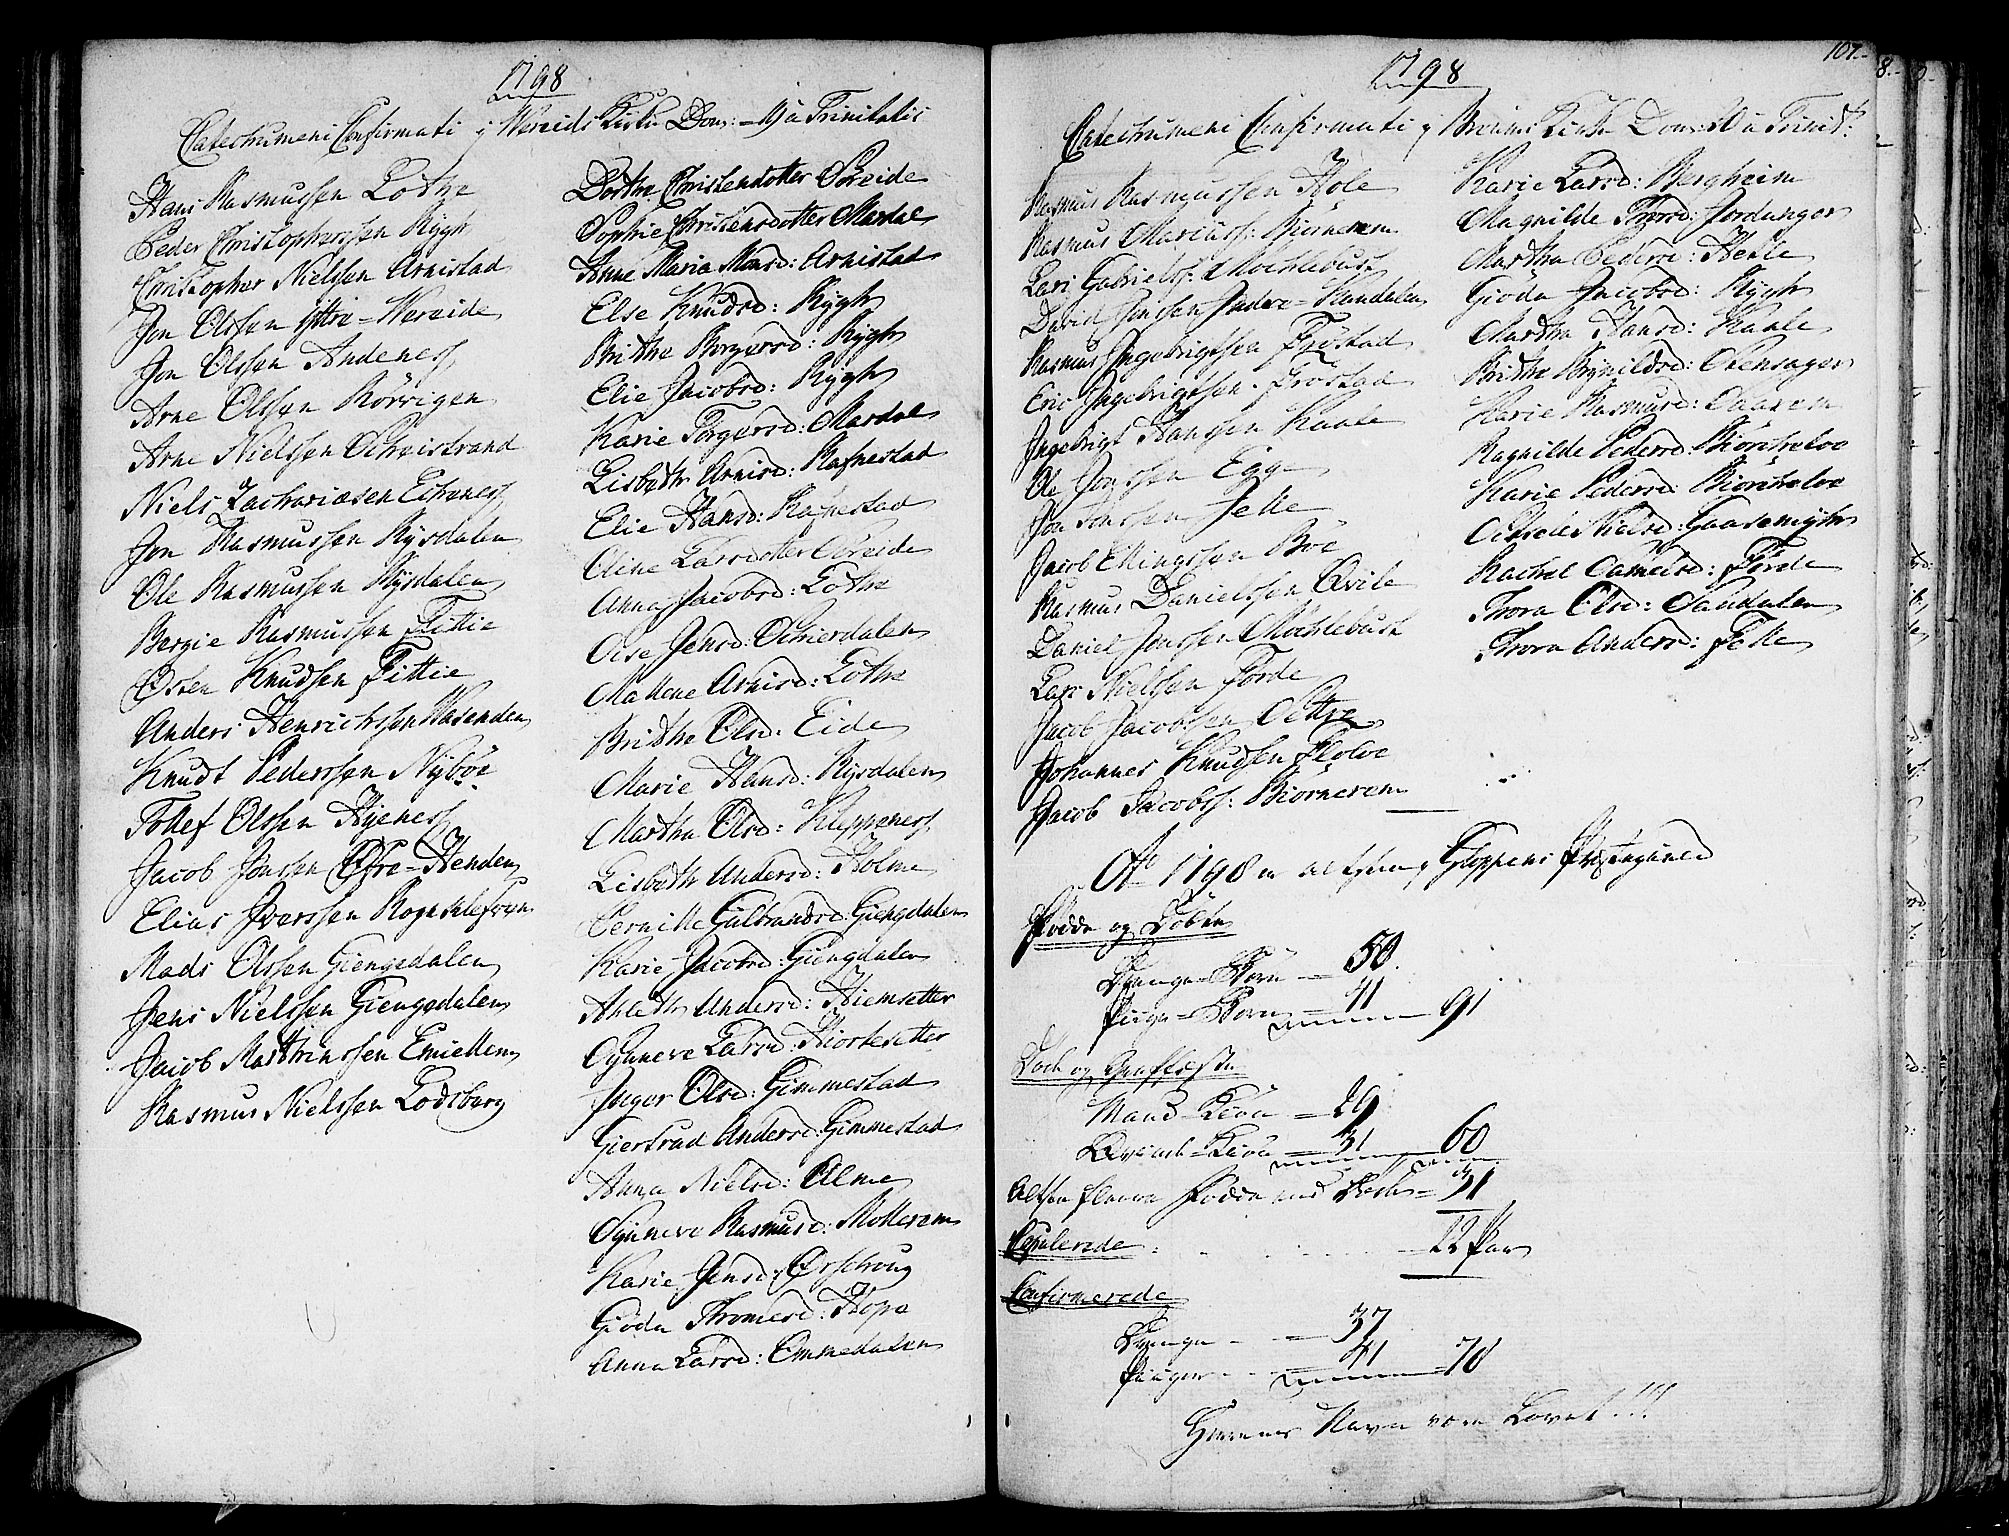 1798
Catechumeni Confirmati i Wereids Kirke Dom: 19 a Trinitatis
Hans Rasmussen Lothe
Peder Christophersen Rygh
Christopher Nielssen Arnistad
Jon Olssen Yttre-Wereide
Jon Olssen Andenes
Arne Olssen Rörvigen
Arne Nielssen Schreistrand
Niels Zachariasen Echenes
Jon Rasmussen Rysdalen
Ole Rasmussen Rysdalen
Bergie Rasmussen Fittie
Osten Knudsen Fittie
Anders Henrichsen Wasenden
Knudt Pederssen Nyböe
Tollef Olssen Hyenes
Jacob Jonssen Öfre-Henden
Elias Iverssen
Mads Olssen Giengedalen
Jens Nielssen Giengedalen
Jacob Morthinssen
Rasmus Nielssen Lodsberg
Dorthe Christensdotter Söreide
Sophie Christensdotter Mardal
Anne Maria Monsd: Arnistad
Else Knudsd: Rygh
Brithe Borgersd: Rygh
Elie Jacobsd: Rygh
Karie Torgersd: Mardal
Lisbeth Arnisd: Rafnestad
Elie Hansd: Rafnestad
Oline Larsdotter Söreide
Anna Jacobsd: Lothe
Oise Jensd: Schierdalen
Mallene Arnisd: Lothe
Brithe Olsd: Eide
Marie Hansd: Rysdalen
Martha Olsd: Kleppenes
Lisbeth Andersd: Holme
Pernille Gulbrandsd: Giengdalen
Karie Jacobsd: Giengdalen
Ahlath Andersd: Hiemsetter
Synneve Larsd: Hiortesetter
Inger Olsd: Gimmestad
Giertrud Andersd: Gimmestad
Anna Nielsd: Alme
Synneve Rasmusd: Mollerem
Karie Jensd:
Gioda Thomesd: Hope
Anna Larsd: Emmedalen
107.
1798
Catechumeni Confirmati i Breims Kirke Dom: 20 a Trinit:
Rasmus Rasmussen Hole
Rasmus Mariuss: Biörnerem
Lars Gabrielss: Mochlebust
David Jenssen Indre-Kandalen
Rasmus Ingebrigtsen Fröstad
Eric Ingebrigtsen Fröstad
Ingebrigt Hanssen Kaale
Ole Jonssen Egge
Jon Jonssen Felle
Jacob Ellingssen Böe
Rasmus Danielssen Qvile
Daniel Jonssen Mochlebust
Lars Nielssen Förde
Jacob Jacobssen Settre
Johannes Knudsen Flölve
Jacob Jacobss: Biörnerem
Karie Larsd: Bergheim
Magnilde Thorsd: Jordanger
Martha Pedersd: Hetle
Gioda Jacobsd: Rygh
Martha Hansd: Kaale
Brithe Brynildsd: Stensager
Karie Rasmusd:
Ragnilde Pedersd: Biörcheloe
Karie Pedersd: Biörcheloe
Nielsd: Gaasemyhr
Rachel Samuelsd: Förde
Thora Olsd: Sandalen
Thora Andersd: Felle
Ao 1798 er altsaa i Gloppens Præstegield
Födde og Döbte
Drenge-Börn = 50
Piige-Börn = 41 91
Döde og Graffæste
Mand-Kiön = 29
Qvinde-Kiön = 31 60
Altsaa fleere födde end döde = 31
Copulerede 22 Par
Confirmerede
Drenge = 37
Piiger = 41 78
Herrens Navn være Lovet!!!